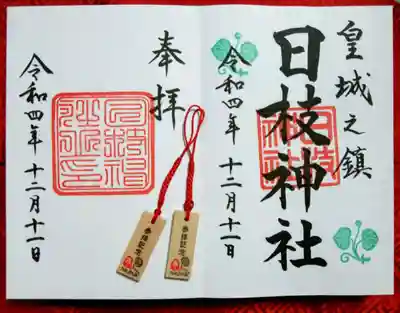 皇城之鎮
日枝神社
令和四年 十二月十一日
奉拝
令和四年 十二月十一日
参拝記念
参拝記念